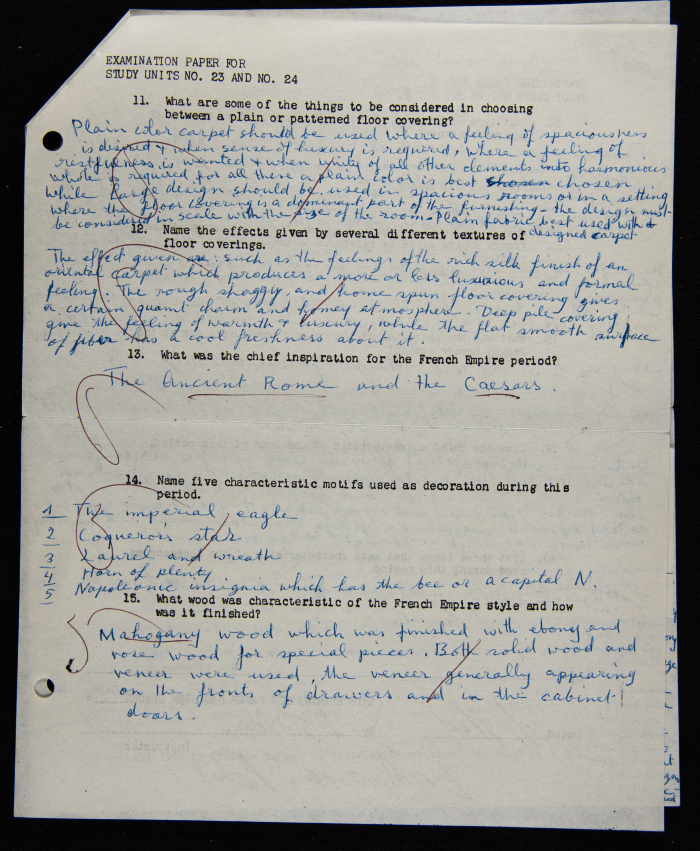 EXAMINATION PAPER FOR
STUDY UNITS NO. 23 AND NO. 24
11. What are some of the things to be considered in choosing
between a plain or patterned floor covering?
Plain color carpet should be used where a feeling of spaciousness
is desired & when sense of luxury is required, where a feeling of
restfulness is wanted & when unity of all other elements into harmonious
whole is required for all these a plain color is best chosen
while large design should be used in spacious rooms or in a setting
where the floor covering is a dominant part of the furnishing - the design must
be considered in scale with the size of the room - Plain fabric best used with
designed carpet
12. Name the effects given by several different textures of
floor coverings.
The effect given are: such as the feelings of the rich silk finish of an
oriental carpet which produces a more or less luxurious and formal
feeling. The rough shaggy, and home spun floor covering gives
a certain quaint charm and homey atmosphere. Deep pile covering
give the feeling of warmth & luxury, while the flat smooth surface
of fiber has a cool freshness about it.
13. What was the chief inspiration for the French Empire period?
The Ancient Rome and the Caesars.
14. Name five characteristic motifs used as decoration during this
period.
1 The imperial eagle
2 Coqueror's star
3 Laurel and wreath
4 Horn of plenty
5 Napoleonic insignia which has the bee or a capital N.
15. What wood was characteristic of the French Empire style and how
was it finished?
Mahogany wood which was finished with ebony and
rose wood for special pieces. Both solid wood and
veneer were used, the veneer generally appearing
on the fronts of drawers and in the cabinet
doors.